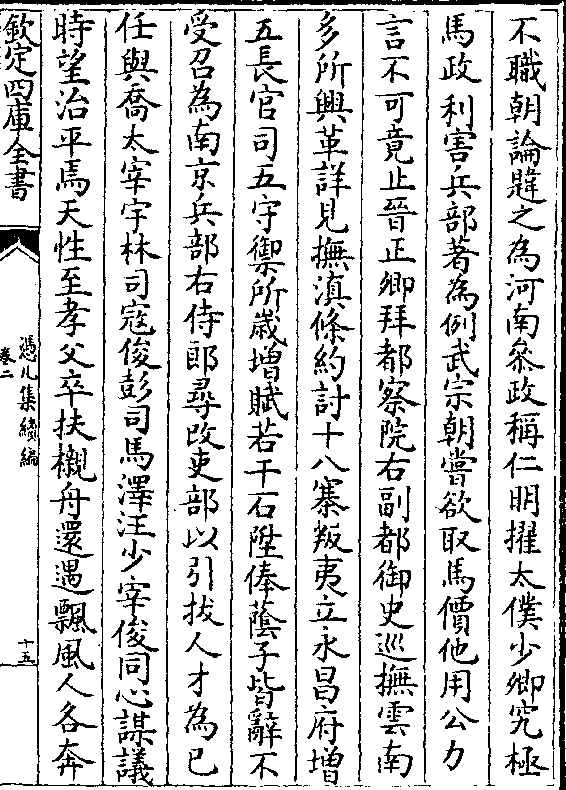 不職朝論韙之為河南叅政稱仁明擢太僕少卿究極
馬政利害兵部著為例武宗朝嘗欲取馬價他用公力
言不可竟止晉正卿拜都察院右副都御史巡撫雲南
多所興革詳見撫滇條約討十八寨叛夷立永昌府增
五長官司五守禦所歳增賦若干石陞俸蔭子皆辭不
受召為南京兵部右侍郎尋改吏部以引拔人才為已
任與喬太宰宇林司寇俊彭司馬澤汪少宰俊同心謀議
時望治平焉天性至孝父卒扶櫬舟還遇飄風人各奔
欽定四庫全書
憑几集續編
卷二
十五